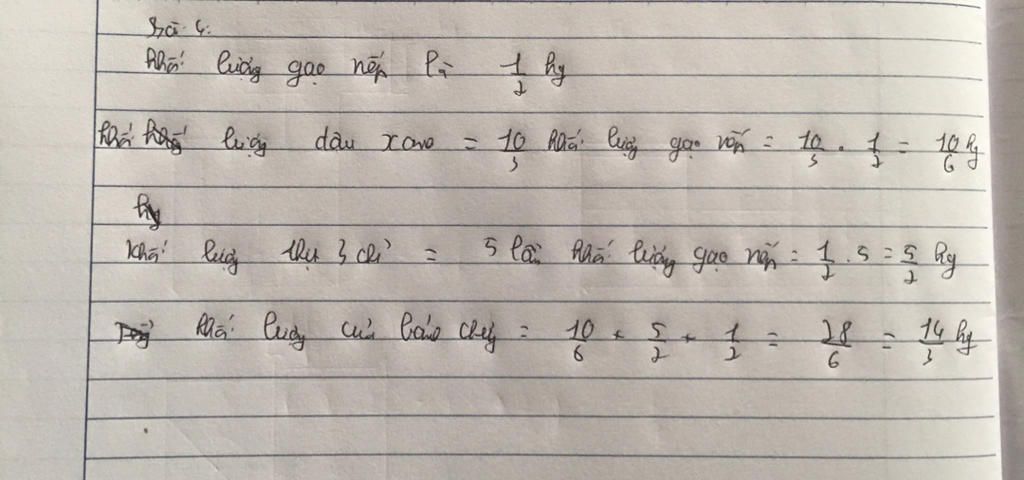 Bài 4:
Khối lượng gạo nếp là 1/2 kg
Khối lượng đậu xanh = 10/3 khối lượng gạo nếp = 10/3 . 1/2 = 10/6 kg
kg
Khối lượng thịt 3 chỉ = 5 lần khối lượng gạo nếp = 1/2 . 5 = 5/2 kg
Khối lượng của bánh chưng = 10/6 + 5/2 + 1/2 = 28/6 = 14/3 kg